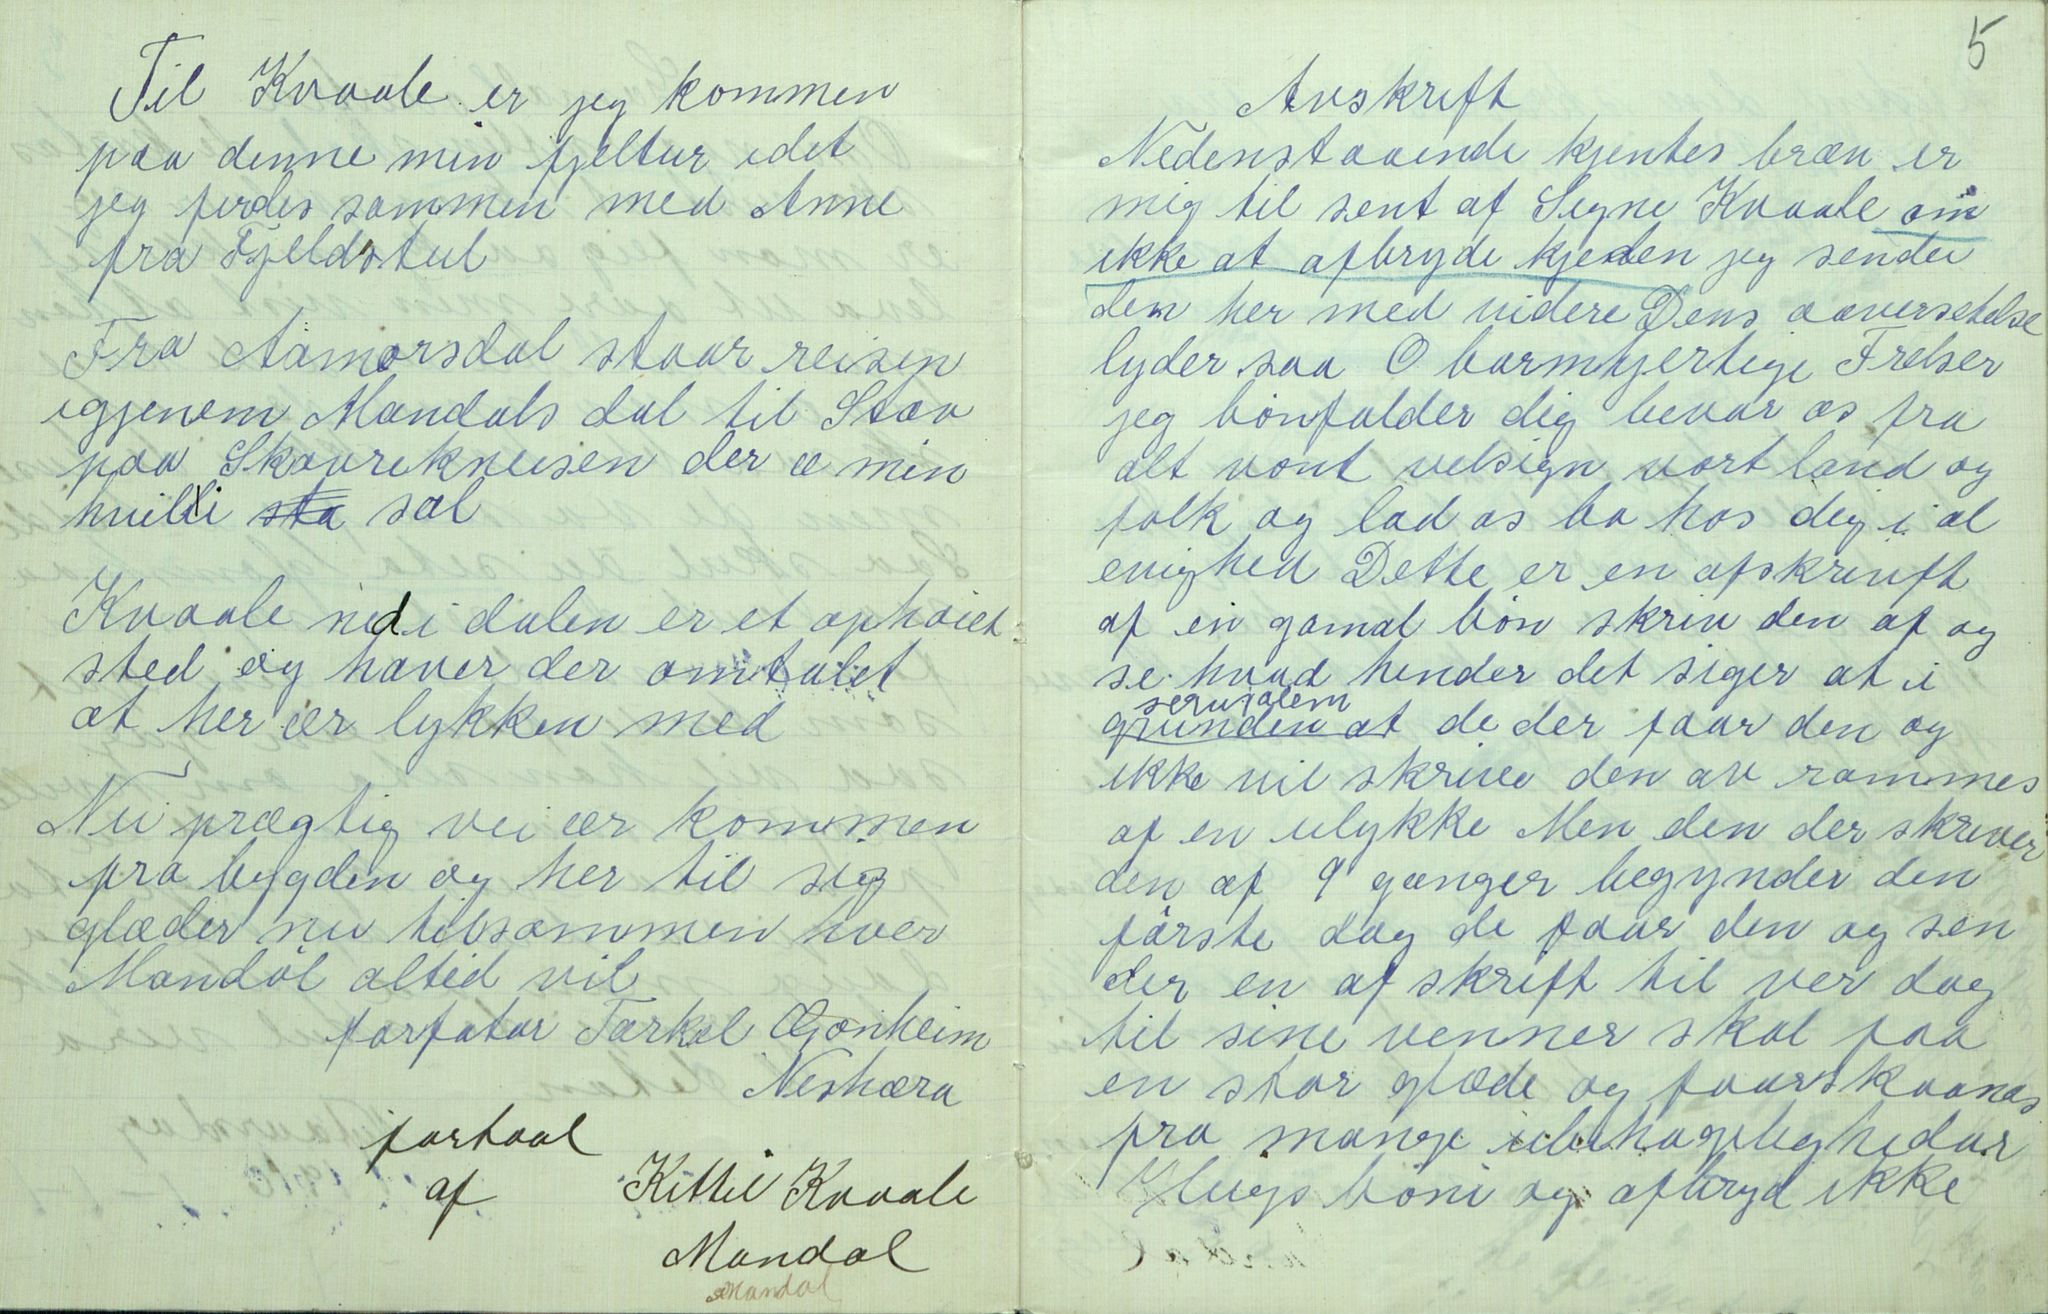 Til Kvaale er jeg kommen
paa denne min fjeltur idet
jeg ferdes sammen med Anne
fra Fjeldstul
Fra Aamorsdal staar reisen
igjenem Mandals dal til Stav
paa Skavrekneisen der æ min
hvilli sta sæl
Kvaale ned i dalen er et ophøiet
sted og haver der omtalet
at her ær lykken med
Nu prægtig vei ær kommen
fra bygden og her til sig
glæder nu tilsammen hver
Mandøl altid vil
forfatar Tarkel Øgonheim
Neshæra
fortaal
af Kittil Kvaale
Mandal
Mandal
5
Avskrift
Nedenstaaende kjentes bræn er
mig til sent af Segne Kvaale om
ikke at afbryde kjeden jeg sender
den her med videre Dens aaversetelse
lyder saa O barmhjertige Frelser
jeg bønfalder dig bevar os fra
alt vont velsign vort land og
folk og lad os bo hos dig i al
evighed Dette er en afskrivft
af en gamal bøn skriv den af og
se hvad hender det siger at i
Jerusalem
grunden at de der faar den og
ikke vil skrive den av rammes
af en ulykke Men den der skriver
den af 9 ganger begynder den
første dag de faar den og sen
der en af skrift til ver dag
til sine venner skal faa
en stor glæde og faar skaanas
fra mange ubehageligheder
Glugs bøni og afbryd ikke